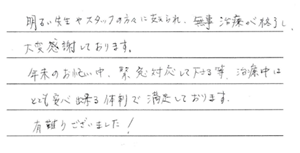 明るい先生やスタッフの方々に支えられ、無事治療が終了し
大変感謝しております。
年末のお忙い中、緊急対応して下さる等、治療中は
とても安心出来る体制で満足しております。
有難うございました！